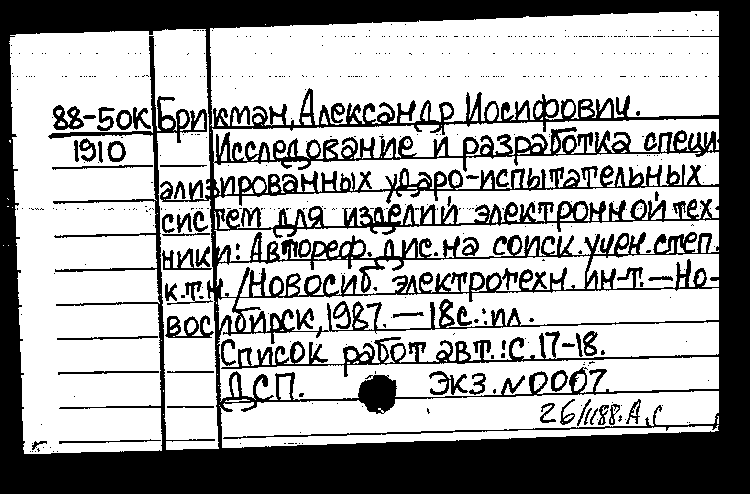 88-50К Брикман, Александр Иосифович.
1910 Исследование и разработка специ-
ализированных ударо-испытательных
систем для изделий электронной тех-
ники: Автореф. дис. на соиск. учен. степ.
к.т.н. /Новосиб. электротехн. ин-т. — Но-
восибирск, 1987. — 18с.: ил.
Список работ авт.: с. 17-18.
ДСП. ЭКЗ. N 0007.
26/II88. А.С.